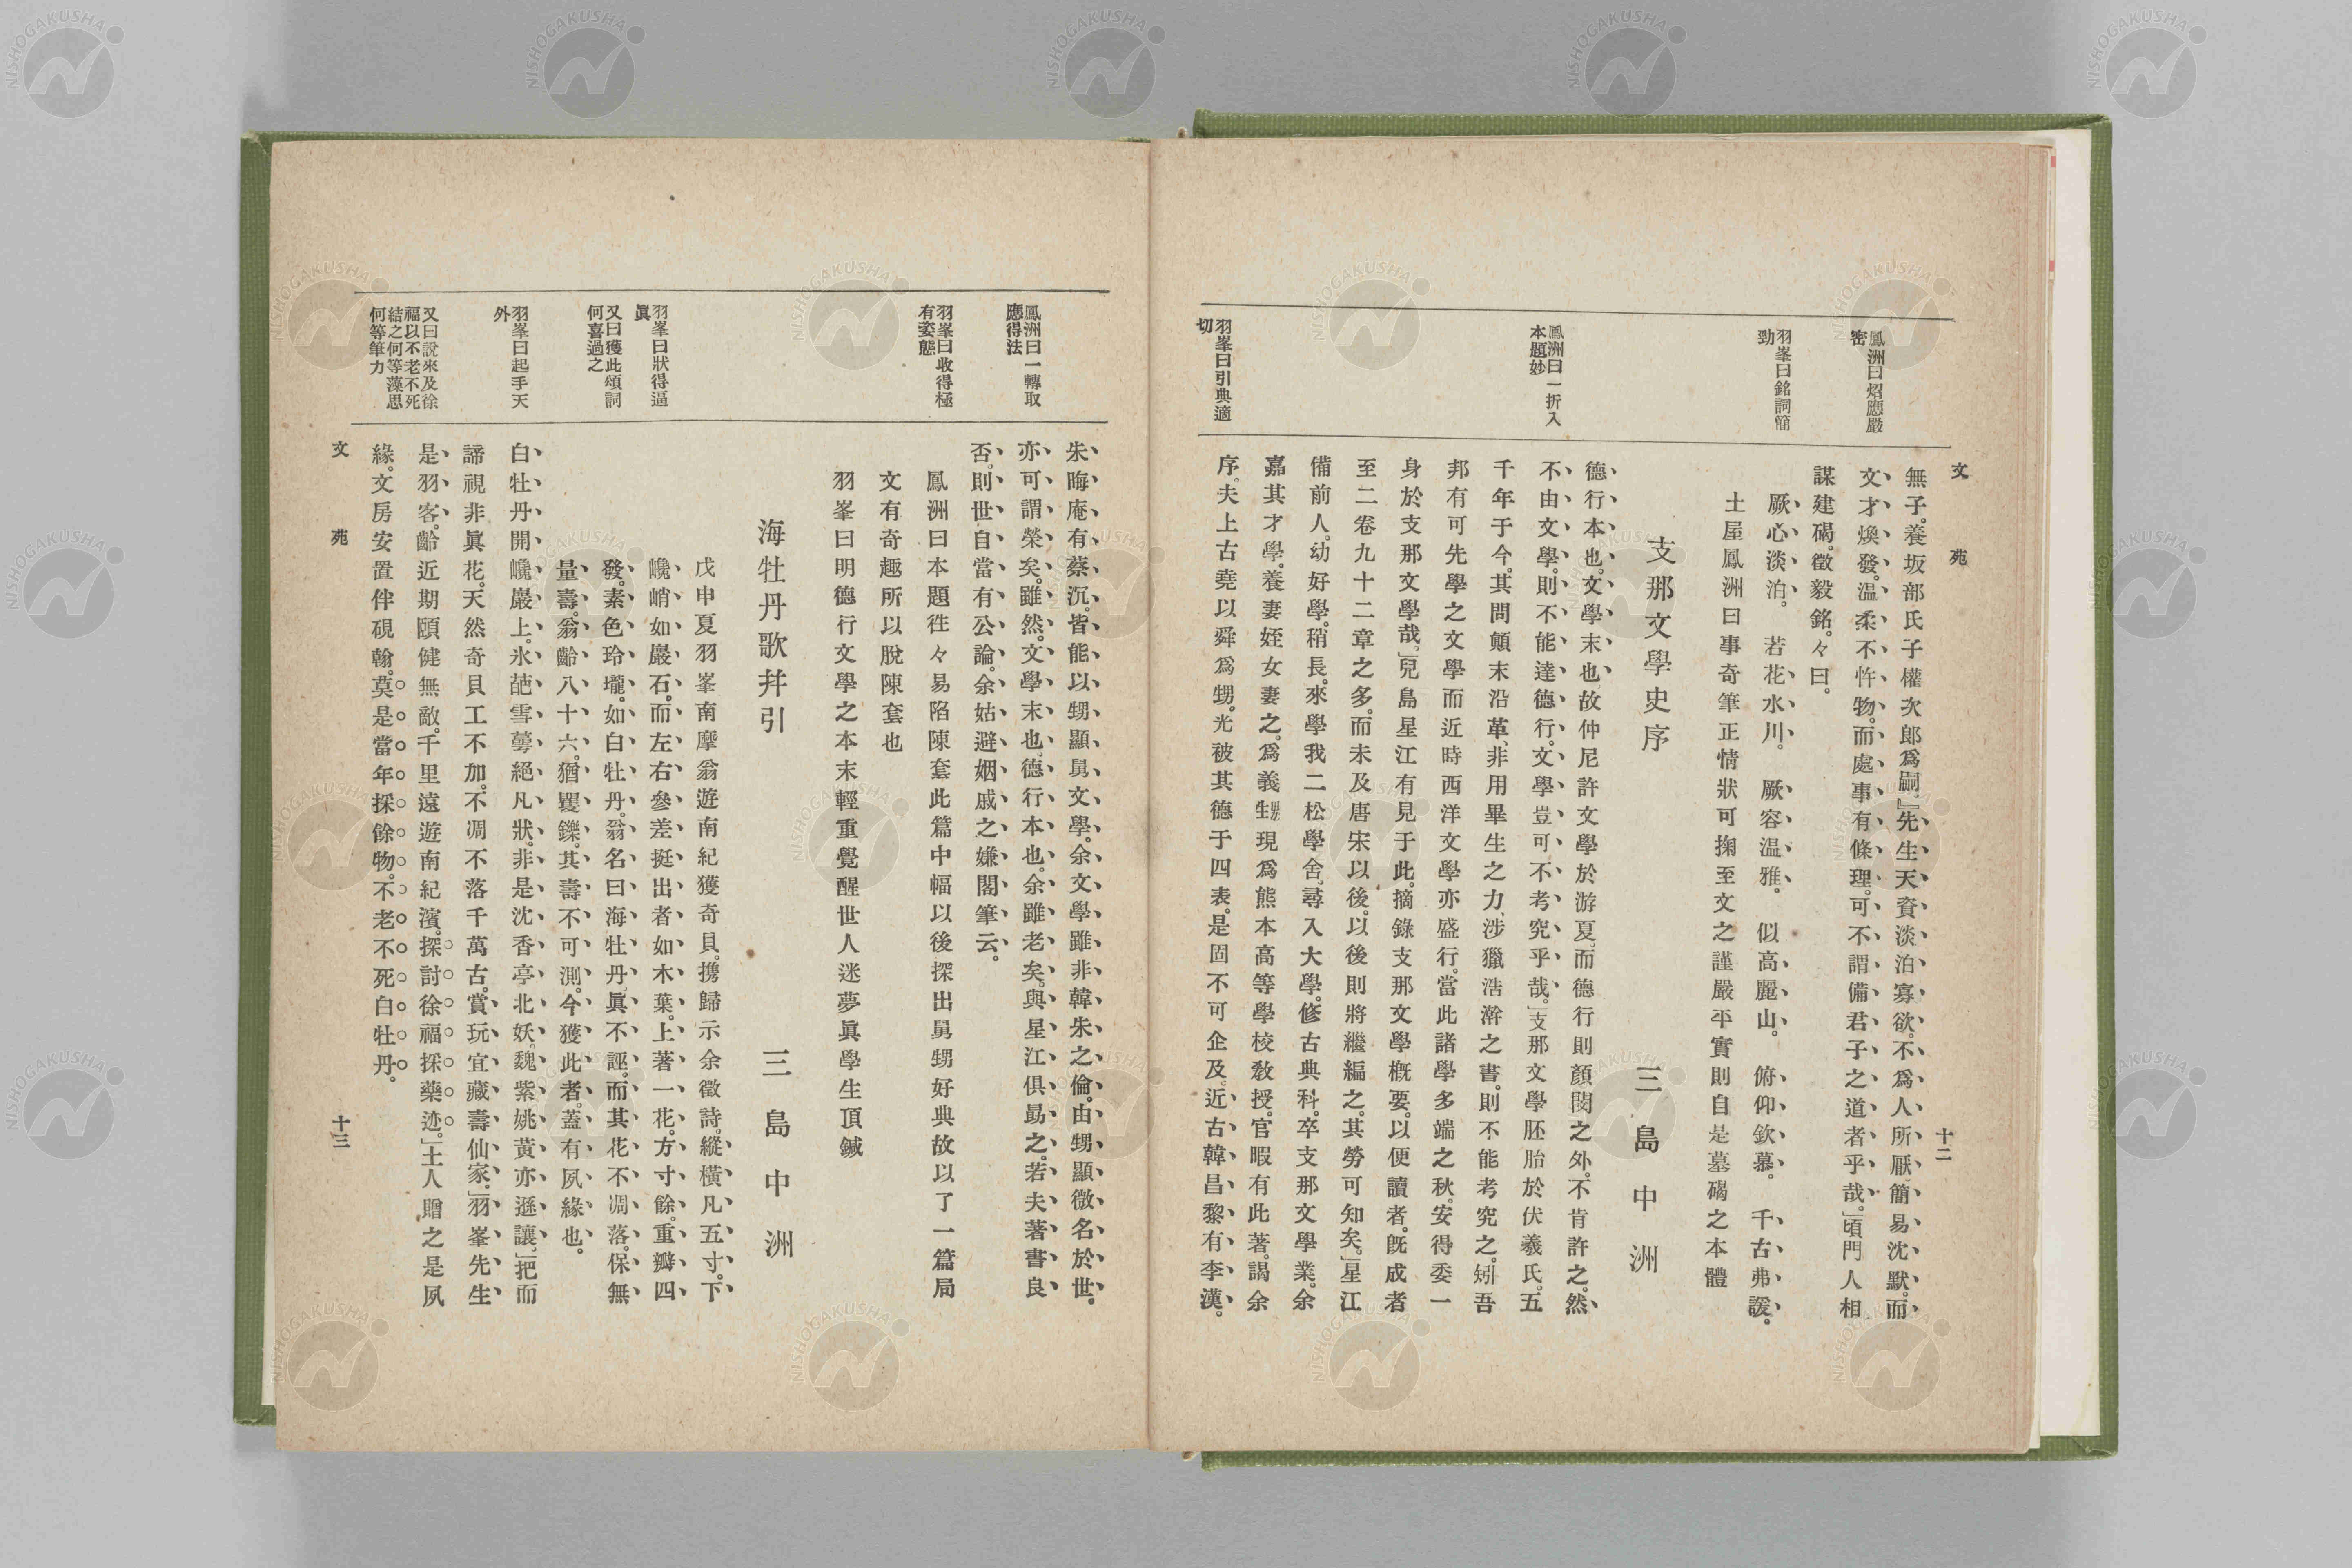 文苑
十二
鳳洲曰焰應嚴
密
羽峯曰銘詞簡
勁
鳳洲曰一折入
本題妙
羽峯曰引典適
切
無子。養坂部氏子權次郎爲嗣。』先生天資淡泊寡欲。不爲人所厭。簡易沈默。而
文才煥發。温柔不忤物。而處事有條理。可不謂備君子之道者乎哉。』頃門人相
謀建碣。徵毅銘。々曰。
厥心淡泊。 若花水川。 厥容温雅。 似高麗山。 俯仰欽慕。 千古弗諼。
土屋鳳洲曰事奇筆正情狀可掬至文之謹嚴平實則自是墓碣之本體
支那文學史序 三島中洲
德行本也。文學末也。故仲尼許文學於游夏、而德行則顏閔之外。不肯許之。然
不由文學。則不能達德行。文學豈可不考究乎哉。』支那文學胚胎於伏羲氏。五
千年于今。其問顛末沿革、非用畢生之力、涉獵浩澣之書。則不能考究之。矧吾
邦有可先學之文學而近時西洋文學亦盛行。當此諸學多端之秋。安得委一
身於支那文學哉。』兒島星江有見于此。摘錄支那文學概要。以便讀者。旣成者
至二卷九十二章之多。而未及唐宋以後。以後則將繼編之。其勞可知矣。』星江
備前人。幼好學。稍長。來學我二松學舍、尋入大學。修古典科。卒支那文學業。余
嘉其才學。養妻姪女妻之。爲義甥。現爲熊本高等學校敎授。官暇有此著。謁余
序。夫上古堯以舜爲甥。光被其德于四表。是固不可企及。近古韓昌黎有李漢。
鳳洲曰一轉取
應得法
羽峯曰收得極
有姿態
羽峯曰狀得逼
眞
又曰獲此頌詞
何喜過之
羽峯曰起手天
外
又曰說來及徐
福以不老不死
結之何等藻思
何等筆力
朱晦庵有蔡沉。皆能以甥顯舅文學。余文學雖非韓朱之倫。由甥顯微名於世。
亦可謂榮矣。雖然。文學末也。德行本也。余雖老矣。與星江俱勗之。若夫著書良
否。則世自當有公論。余姑避姻戚之嫌閣筆云。
鳳洲曰本題徃々易陷陳套此篇中幅以後探出舅甥好典故以了一篇局
文有奇趣所以脫陳套也
羽峯曰明德行文學之本末輕重覺醒世人迷夢眞學生頂鍼
海牡丹歌幷引 三島中洲
戊申夏羽峯南摩翁遊南紀獲奇貝。携歸示余徵詩。縱橫凡五寸。下
巉峭如巖石。而左右參差挺出者如木葉。上著一花。方寸餘。重瓣四
發。素色玲瓏。如白牡丹。翁名曰海牡丹、眞不誣。而其花不凋落。保無
量壽。翁齡八十六。猶矍鑠。其壽不可測。今獲此者。蓋有夙緣也。
白牡丹。開巉巖上。氷葩雪蕚絕凡狀。非是沈香亭北妖。魏紫姚黃亦遜讓。』把而
諦視非眞花。天然奇貝工不加。不凋不落千萬古。賞玩宜藏壽仙家。』羽峯先生
是羽客。齡近期頤健無敵。千里遠遊南紀濱。探討徐福採藥迹。』土人贈之是夙
緣。文房安置伴硯翰。莫是當年採餘物。不老不死白牡丹。
文苑
十三